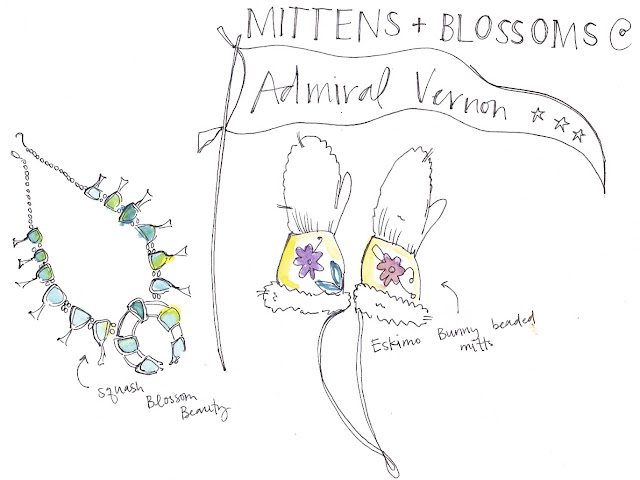 MITTENS + BLOSSOMS @
Admiral Vernon
Eskimo Bunny beaded
mitts
Squash
Blossom
Beauty